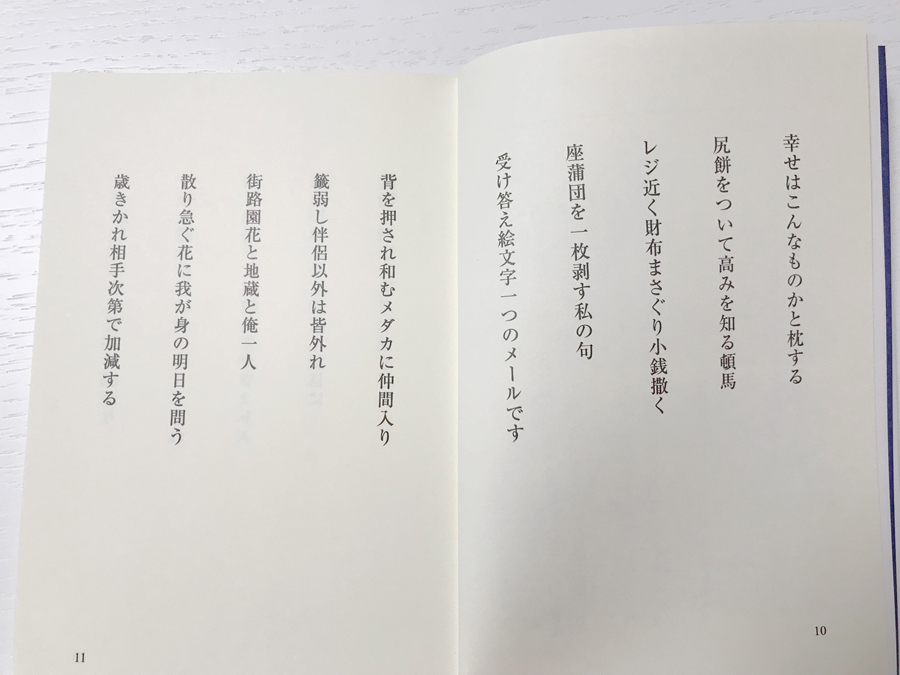 幸せはこんなものかと枕する
尻餅をついて高みを知る頓馬
レジ近く財布まさぐり小銭撒く
座蒲団を一枚剥す私の句
受け答え絵文字一つのメールです
10
背を押され和むメダカに仲間入り
籤弱し伴侶以外は皆外れ
街路園花と地蔵と俺一人
散り急ぐ花に我が身の明日を問う
歳きかれ相手次第で加減する
11